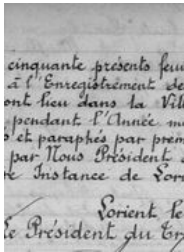 cinquante présents feu
à l'Enregistrement de
ont lieu dans la Vil
pendant l'Année m
s et paraphés par prem
par Nous Président
re Instance de Lori
Lorient le
Le Président du Tr